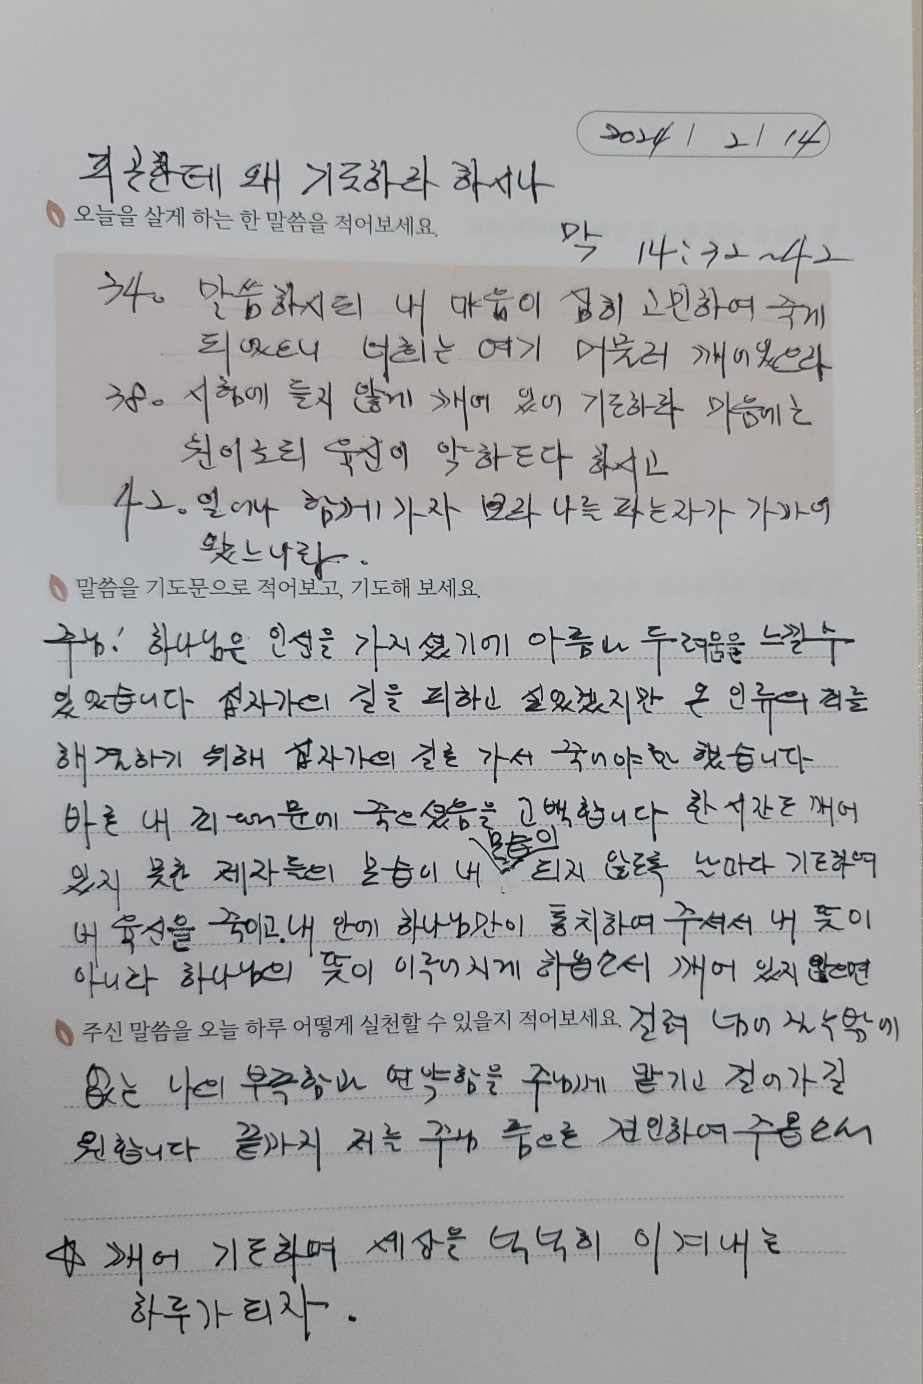 2024 / 2 / 14
피곤한데 왜 기도하라 하시나
오늘을 살게 하는 한 말씀을 적어보세요.
막 14:32~42
34. 말씀하시되 내 마음이 심히 고민하여 죽게
되었으니 너희는 여기 머물러 깨어있으라
38. 시험에 들지 않게 깨어 있어 기도하라 마음에는
원이로되 육신이 약하도다 하시고
42. 일어나 함께 가자 보라 나를 파는자가 가까이
왔느니라.
말씀을 기도문으로 적어보고, 기도해 보세요.
주님! 하나님은 인성을 가지셨기에 아픔과 두려움을 느낄 수
있었습니다 십자가의 길을 피하고 싶었겠지만 온 인류의 죄를
해결하기 위해 십자가의 길로 가서 죽어야만 했습니다
바로 내 죄 때문에 죽으셨음을 고백합니다 한 시간도 깨어
있지 못한 제자들의 모습이 내 모습이 되지 않도록 날마다 기도하여
내 육신을 죽이고. 내 안에 하나님만이 통치하여 주셔서 내 뜻이
아니라 하나님의 뜻이 이루어지게 하옵소서 깨어 있지 않으면
주신 말씀을 오늘 하루 어떻게 실천할 수 있을지 적어보세요. 걸려 넘어질 수밖에
없는 나의 부족함과 연약함을 주님께 맡기고 걸어가길
원합니다 끝까지 저를 주님 품으로 견인하여 주옵소서
☆ 깨어 기도하며 세상을 넉넉히 이겨내는
하루가 되자.